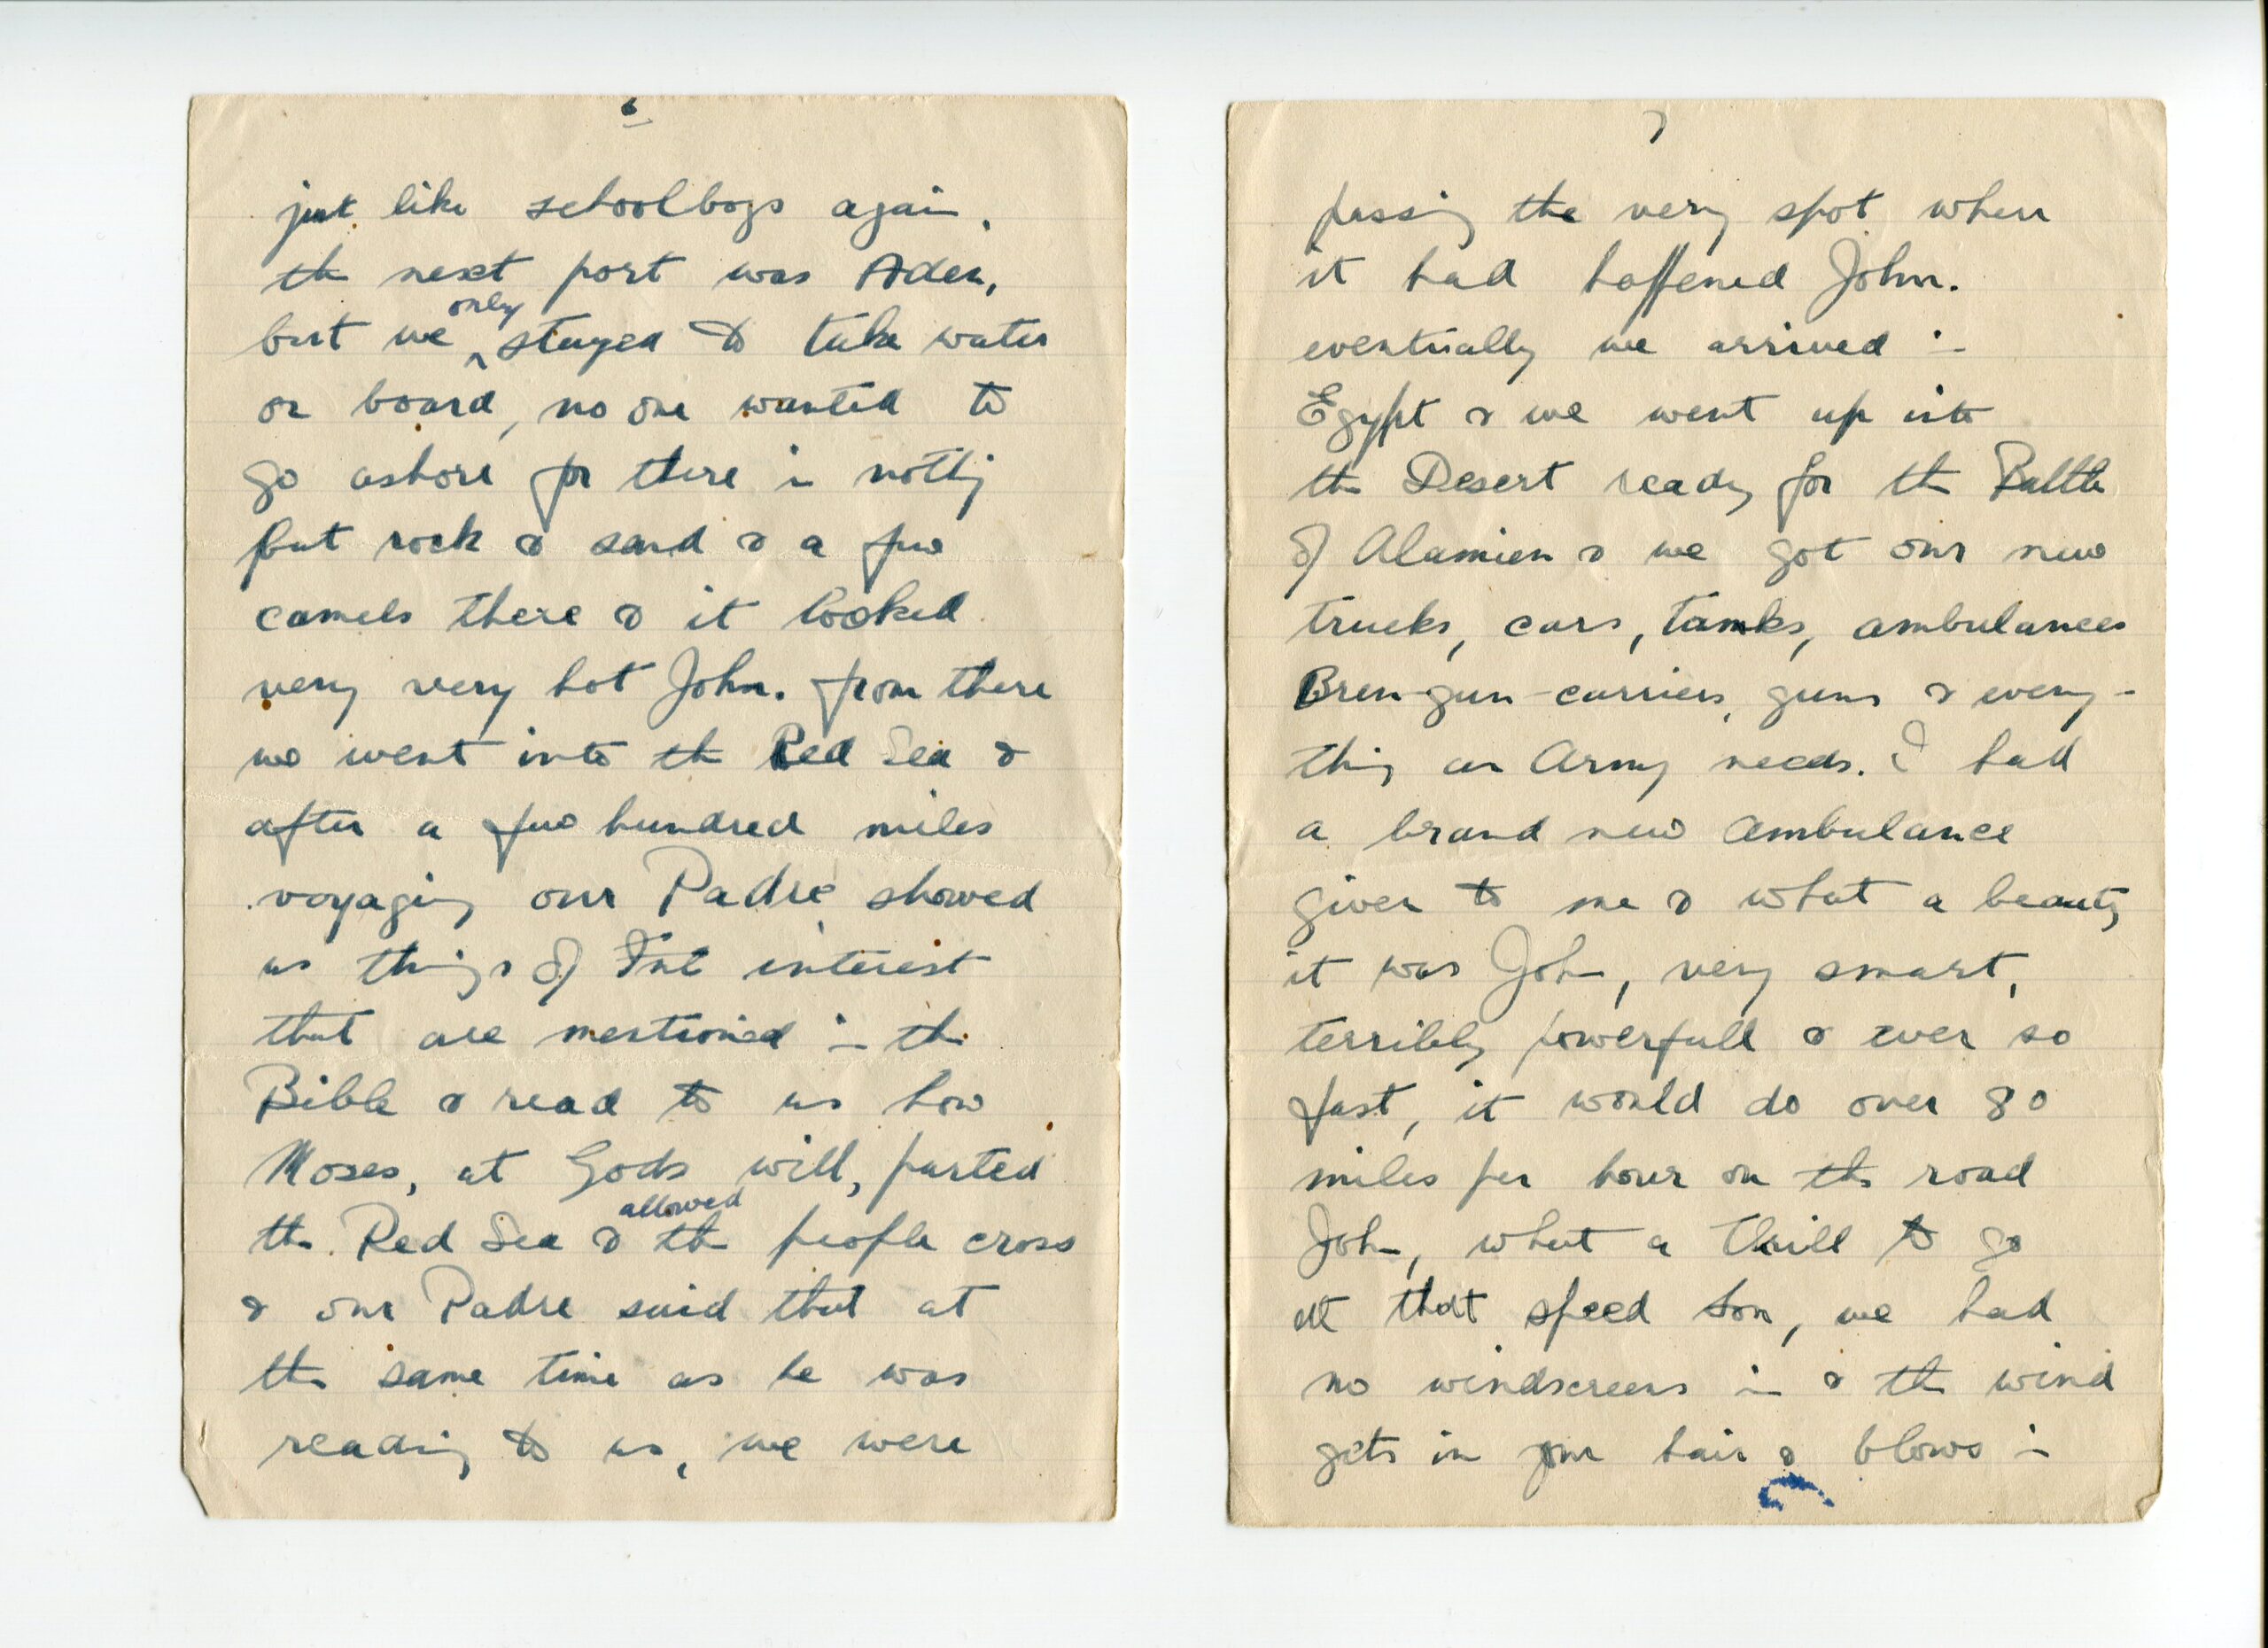 6
just like schoolboys again,
the next port was Aden,
but we only stayed to take water
on board, no one wanted to
go ashore for there is nothing
but rock & sand & a few
camels there & it looked
very very hot John. from there
we went into the Red Sea &
after a few hundred miles
voyaging our Padre showed
us things of interest
that are mentioned in the
Bible & read to us how
Moses, at Gods will, parted
the Red Sea & allowed the people cross
& our Padre said that at
the same time as he was
reading to us, we were
7
passing the very spot where
it had happened John.
eventually we arrived in
Egypt & we went up into
the Desert ready for the Battle
of Alamien & we got our new
trucks, cars, tanks, ambulances
Bren-gun-carriers, guns & every-
thing an Army needs. I had
a brand new Ambulance
given to me & what a beauty
it was John, very smart,
terribly powerfull & ever so
fast, it would do over 80
miles per hour on the road
John, what a thrill to go
at that speed Son, we had
no windscreens in & the wind
gets in your hair & blows in